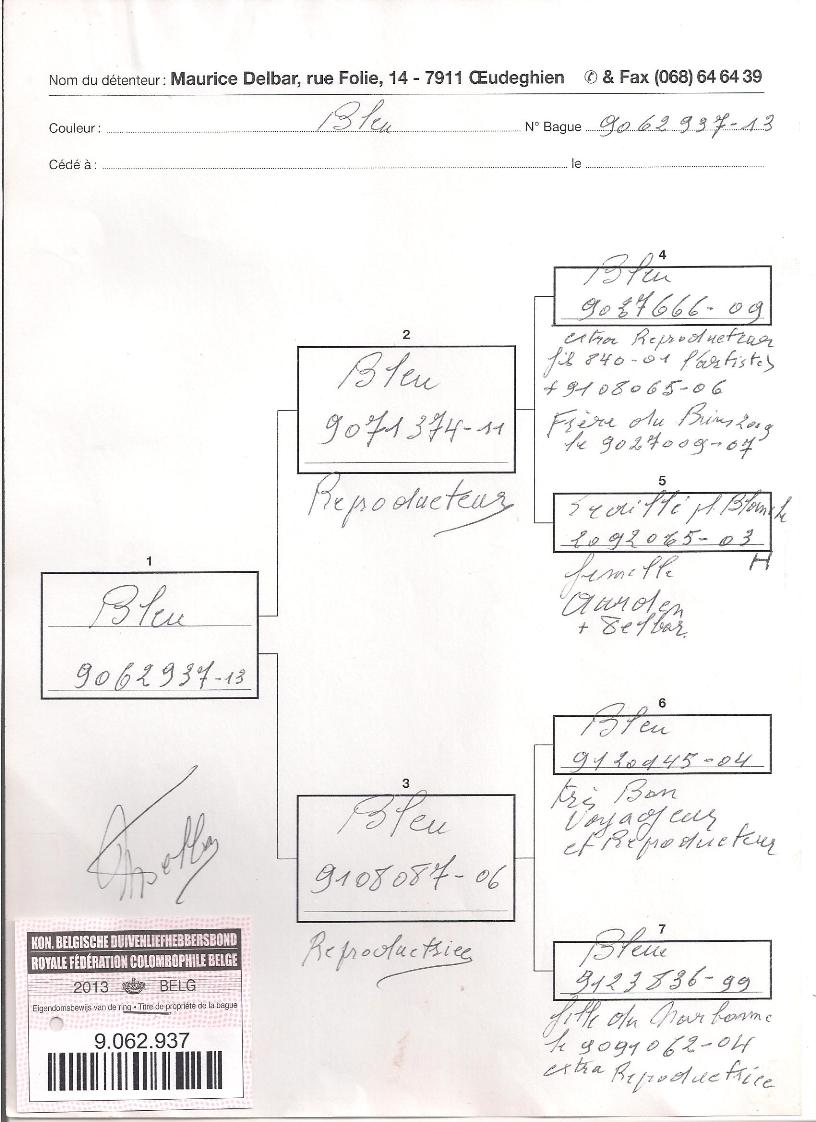 Nom du détenteur : Maurice Delbar, rue Folie, 14 - 7911 Œudeghien ✆ & Fax (068) 64 64 39
Couleur : Bleu N° Bague 9062937-13
Cédé à : le
4
Bleu
9027666-09
extra Reproducteur
fils 840-01 l'artiste
+ 9108065-06
Frère du
le 9027009-07
2
Bleu
9071374-11
Reproducteur
5
Ecaillé pl Blanche
2092065-03
H
femelle
Aarden
+ Delbar
1
Bleu
9062937-13
6
Bleu
9120145-04
très Bon
Voyageur
et Reproducteur
3
Bleu
9108087-06
Reproductrice
7
Bleue
9123836-99
fille du Narbonne
le 9091062-04
extra Reproductrice
KON. BELGISCHE DUIVENLIEFHEBBERSBOND
ROYALE FÉDÉRATION COLOMBOPHILE BELGE
2013 BELG
Eigendomsbewijs van de ring • Titre de propriété de la bague
9.062.937